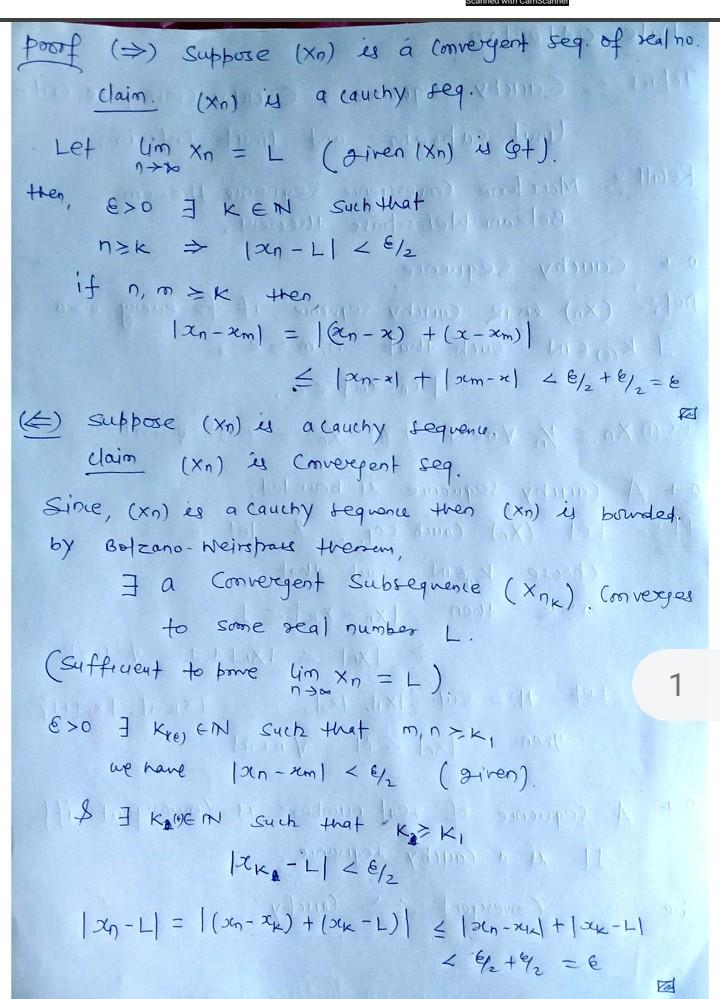 Scanned with CamScanner
Proof (⇒) Suppose (xn) is a convergent seq. of real no.
Claim. (xn) is a cauchy seq.
Let lim n→∞ xn = L (given (xn) is cgt).
then, ε>0 ∃ K ∈ N such that
n≥k ⇒ |xn - L| < ε/2
if n, m ≥ K then
|xn - xm| = |(xn - x) + (x - xm)|
≤ |xn-x| + |xm-x| < ε/2 + ε/2 = ε
(⇐) Suppose (xn) is a cauchy sequence.
claim (xn) is Convergent seq.
Since, (xn) is a Cauchy sequance then (xn) is bounded.
by Bolzano-Weirstrass theorem,
∃ a Convergent Subsequence (xnk). Converges
to some real number L.
(Sufficient to prove lim n→∞ xn = L).
ε>0 ∃ K1(ε) ∈ N such that m, n ≥ K1
we have |xn - xm| < ε/2 (given).
& ∃ K2(ε) ∈ N such that K2 ≥ K1
|xK2 - L| < ε/2
|xn - L| = |(xn - xk) + (xk - L)| ≤ |xn - xk| + |xk - L|
< ε/2 + ε/2 = ε
1